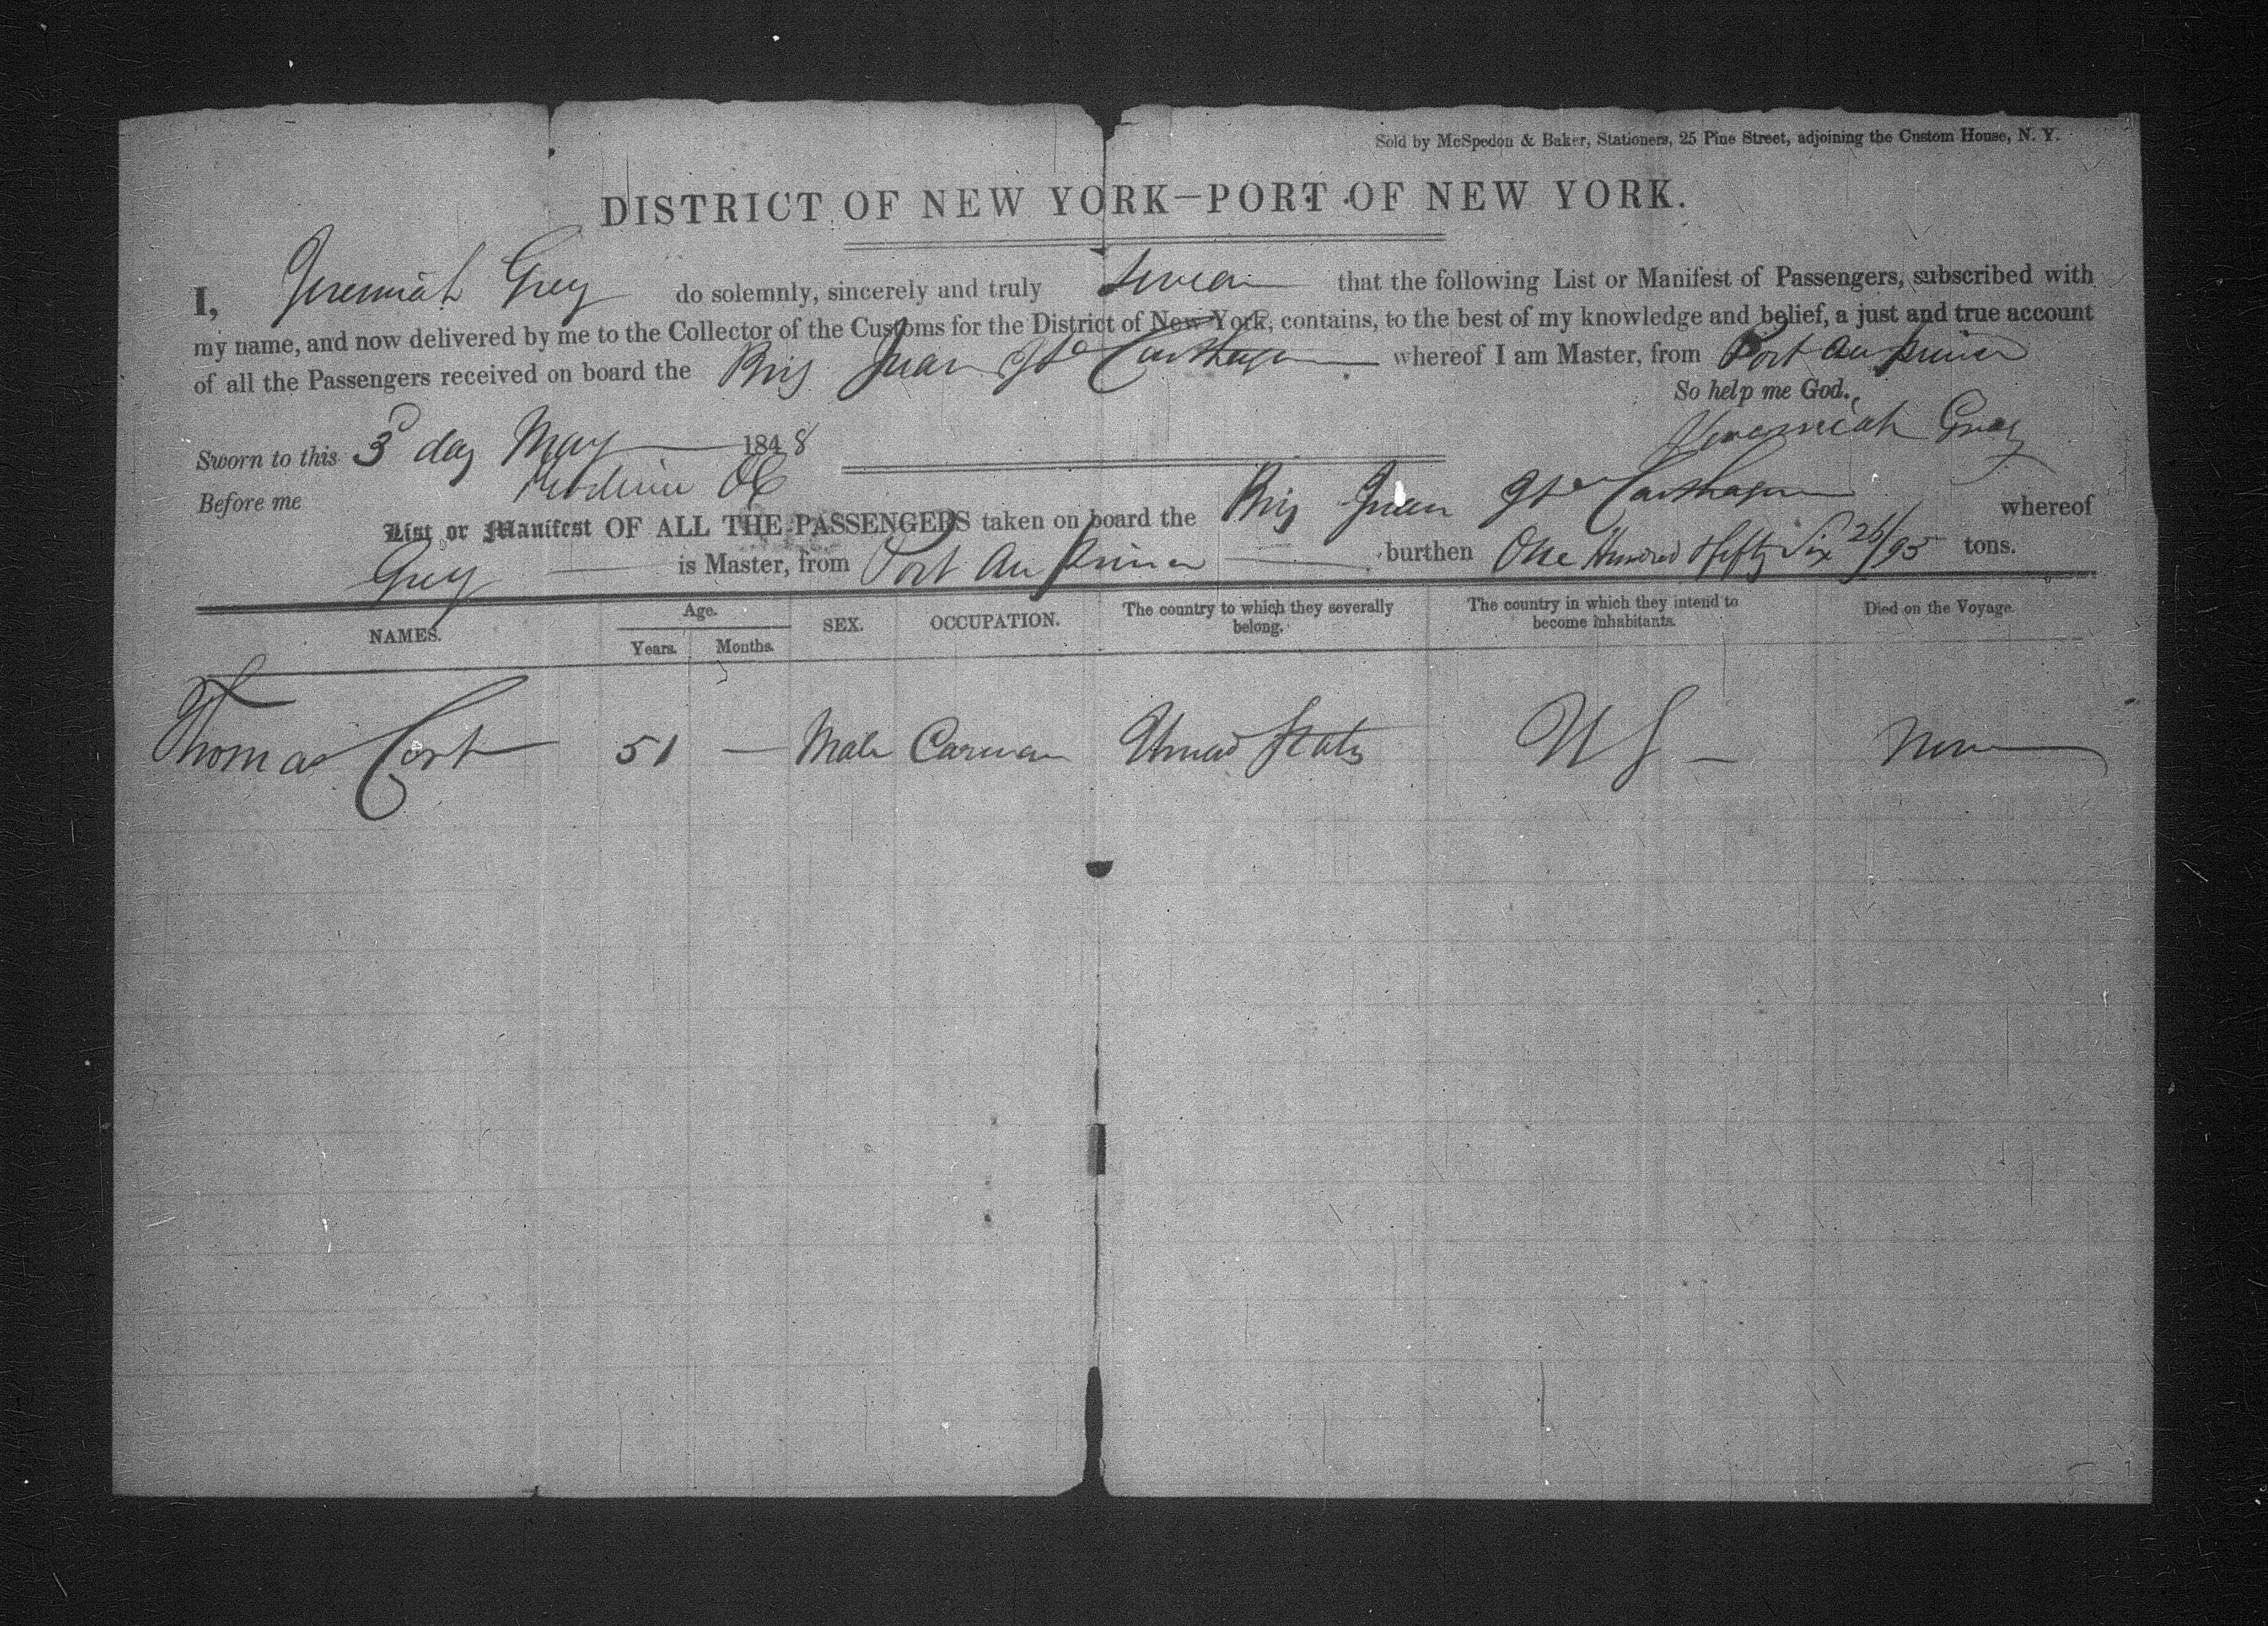 Sold by McSpedon & Baker, Stationers, 25 Pine Street, adjoining the Custom House, N. Y.
DISTRICT OF NEW YORK—PORT OF NEW YORK.
I, Jeremiah Grey do solemnly, sincerely and truly swear that the following List or Manifest of Passengers, subscribed with
my name, and now delivered by me to the Collector of the Customs for the District of New York, contains, to the best of my knowledge and belief, a just and true account
of all the Passengers received on board the Brig Juan Carthagena whereof I am Master, from Port au Prince
So help me God.
Sworn to this 3d day May 1848 Jeremiah Gray
Before me
List or Manifest OF ALL THE PASSENGERS taken on board the Brig Juan Carthagena whereof
Grey is Master, from Port Au Prince burthen One Hundred & fifty Six 26/95 tons.
NAMES. Age. Years. Months. SEX. OCCUPATION. The country to which they severally belong. The country in which they intend to become inhabitants. Died on the Voyage.
Thomas Cort 51 — Male United States U S — None